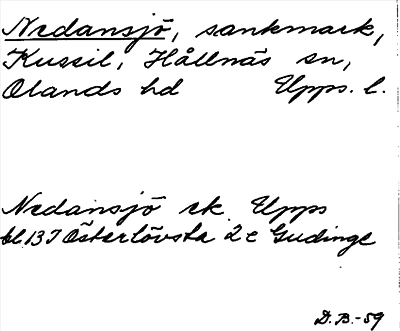 Nedansjö, sankmark,
Kussil, Hållnäs sn,
Olands hd Upps. l.
Nedansjö ek. Upps
bl. 13 I Österlövsta 2 e Gudinge
D.B.-59